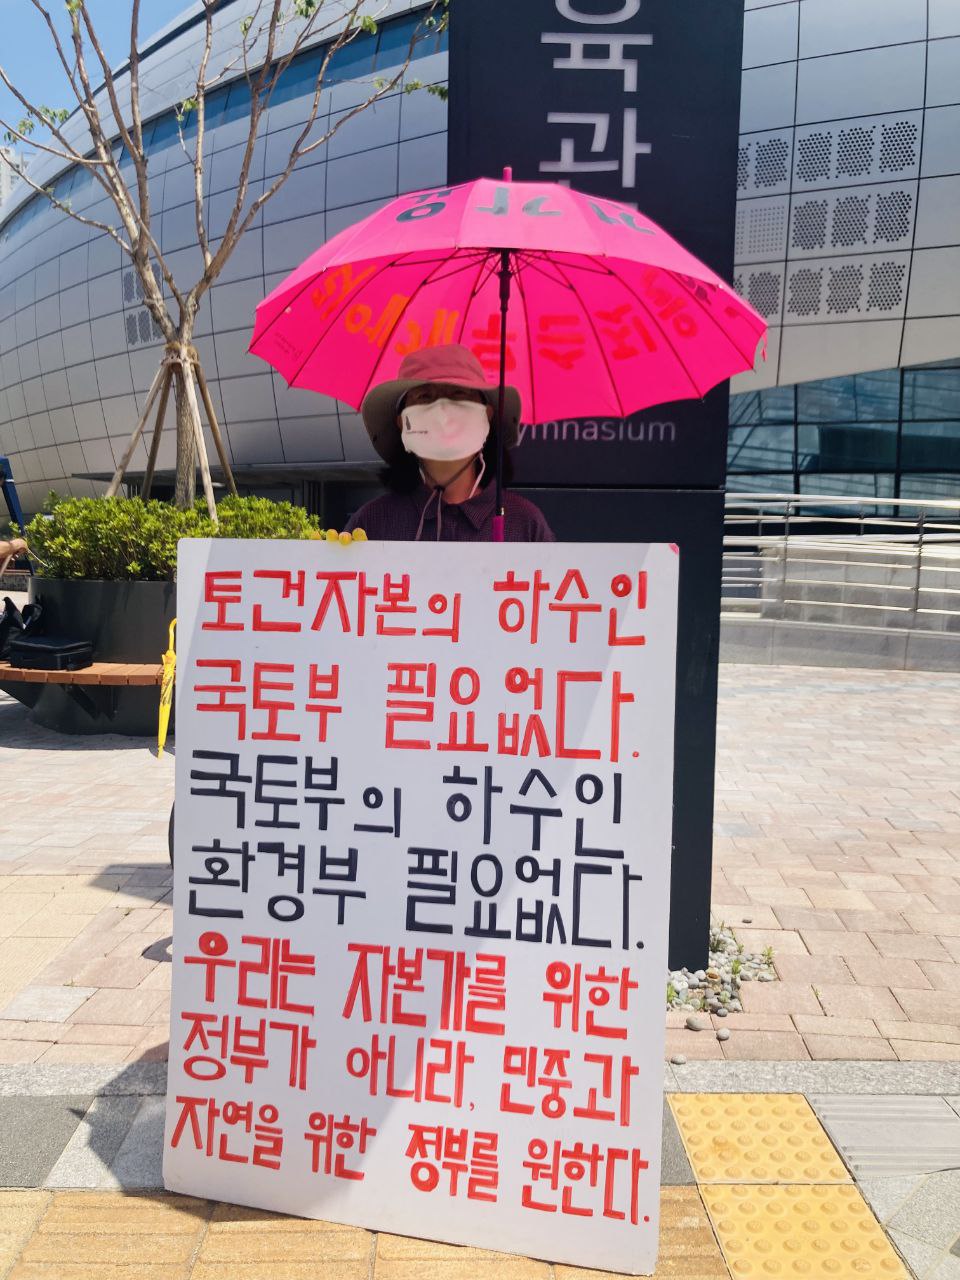 육관
ymnasium
토건자본의 하수인
국토부 필요없다.
국토부의 하수인
환경부 필요없다.
우리는 자본가를 위한
정부가 아니라, 민중과
자연을 위한 정부를 원한다.